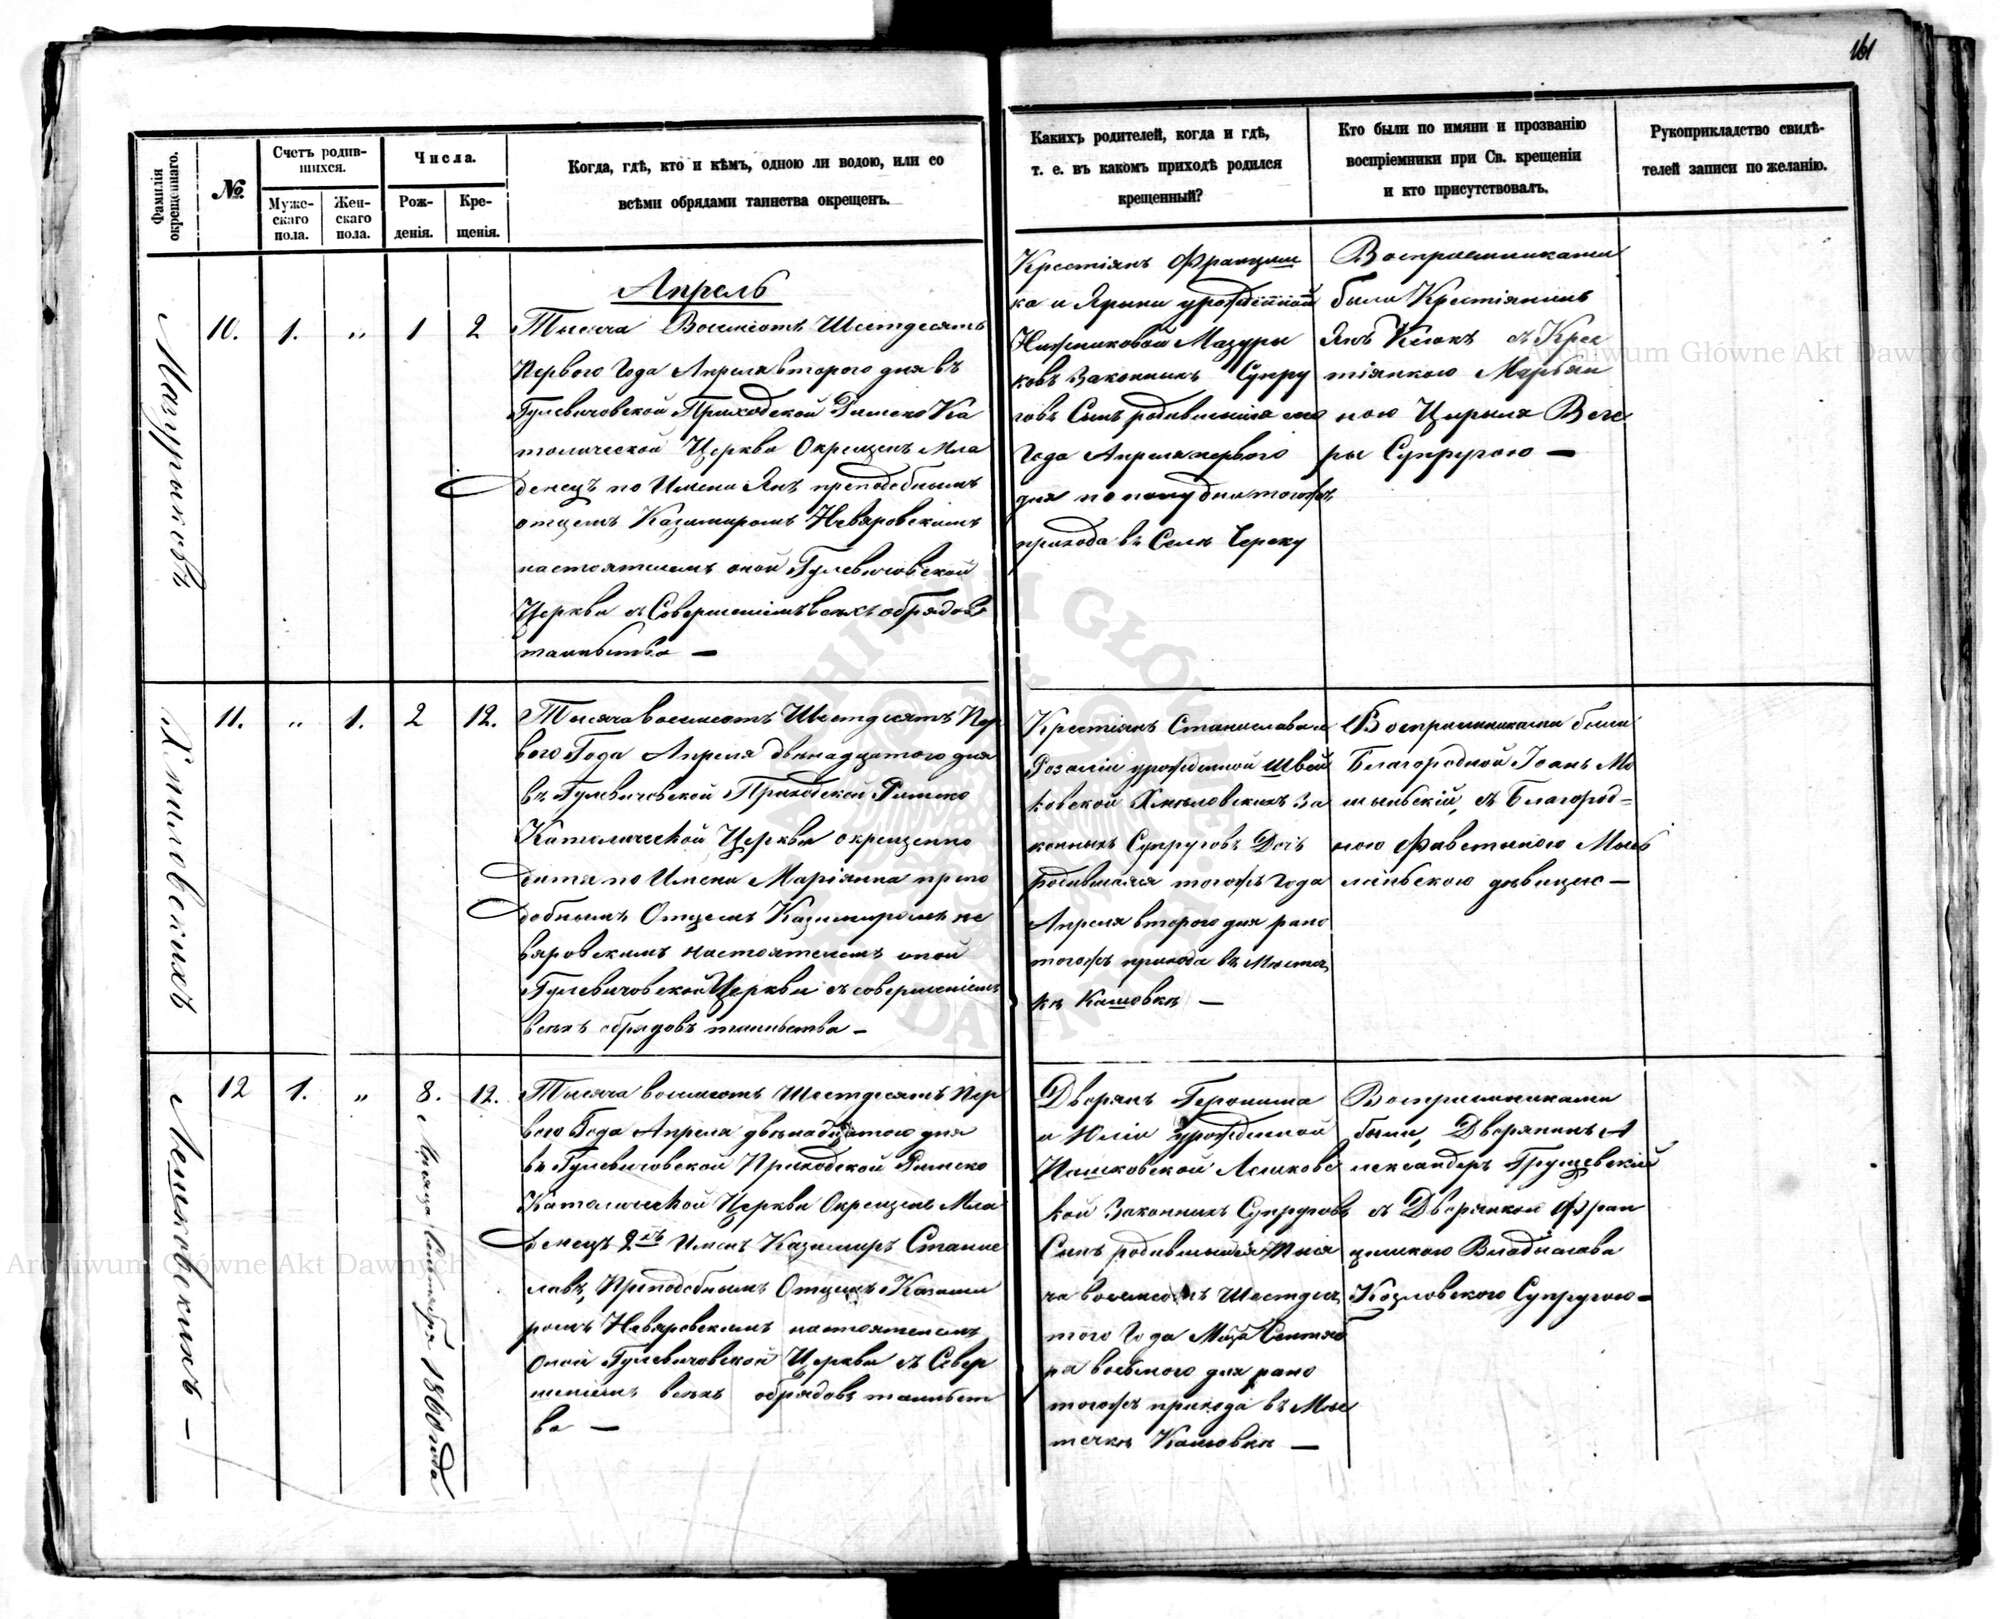 161
Фамилія окрещеннаго.
№
Счетъ родив-
шихся.
Муже-
скаго
пола.
Жен-
скаго
пола.
Числа.
Рож-
денія.
Кре-
щенія.
Когда, гдѣ, кто и кѣмъ, одною ли водою, или со
всѣми обрядами таинства окрещенъ.
Какихъ родителей, когда и гдѣ,
т. е. въ какомъ приходѣ родился
крещенный?
Кто были по имяни и прозванію
воспріемники при Св. крещеніи
и кто присутствовалъ.
Рукоприкладство свидѣ-
телей записи по желанію.
Мазуриковъ
10. 1. „ 1 2
Апрель
Тысяча Восемсотъ Шестдесятъ
Первого Года Апреля второго дня въ
Гулевичовской Приходской Римско Ка
толической Церкви Окрещенъ Мла
денецъ по Имени Янъ преподобнымъ
отцемъ Казимиромъ Невяровскимъ
настоятелемъ оной Гулевичовской
Церкви съ Совершеніемъ всехъ обрядовъ
таинства —
Крестіянъ Франциш
ка и Ярины урожденной
Мазуры
ковъ Законныхъ Супру
говъ Сынъ родившійся сего
Года Апреля первого
дня по полудни тогожъ
прихода въ Селѣ Череку
Восприемниками
были Крестіянинъ
Янъ съ Крес
тіянкою Марьян
ною Цирыля
ры Супругою —
Хмиловскихъ
11. „ 1. 2 12.
Тысяча восемсотъ Шестдесятъ Пер
вого Года Апреля двѣнадцатого дня
въ Гулевичовской Приходской Римско
Католической Церкви окрещенно
дитя по Имени Маріянна препо
добнымъ Отцемъ Казимиромъ Не
вяровскимъ настоятелемъ оной
Гулевичовской Церкви съ совершеніемъ
всехъ обрядовъ таинства —
Крестіянъ Станислава и
Розаліи урожденной Швей
ковской Хмѣловскихъ За
конныхъ Супруговъ Дочь
родившаяся тогожъ Года
Апреля второго дня рано
тогожъ прихода въ Местеч
кѣ Кашовкѣ —
Восприемниками были
Благородной Іоанъ Мо
съ Благород=
ною
дѣвицею —
Лешковскихъ —
12 1. „ 8. 12.
Месяца Сентября 1860 года
Тысяча восемсотъ Шестдесятъ Пер
вого Года Апреля двѣнадцатого дня
въ Гулевичовской Приходской Римско
Католической Церкви Окрещенъ Мла
денецъ 2хъ Именъ Казимиръ Станис
лавъ, Преподобнымъ Отцемъ Казими
ромъ Невяровскимъ настоятелемъ
Оной Гулевичовской Церкви съ Совер
шеніемъ всехъ обрядовъ таинст
ва —
Дворянъ Геронима
и Юліи урожденной
Лешковс
кой Законныхъ Супруговъ
Сынъ родившійся Тыся
ча восемсотъ Шестдеся
того Года Мца Сентяб
ра восьмого дня рано
тогожъ прихода въ Мѣс
течкѣ Кашовкѣ —
Восприемниками
были, Дворянинъ А
лександеръ Грущевскій
съ Дворянкой Фран
цишкою Владислава
Козловского Супругою=
Archiwum Główne Akt Dawnych
Archiwum Główne Akt Dawnych